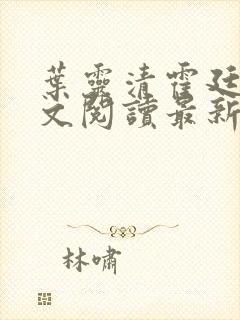 葉靈清霍廷
文閱讀最新
林嘯